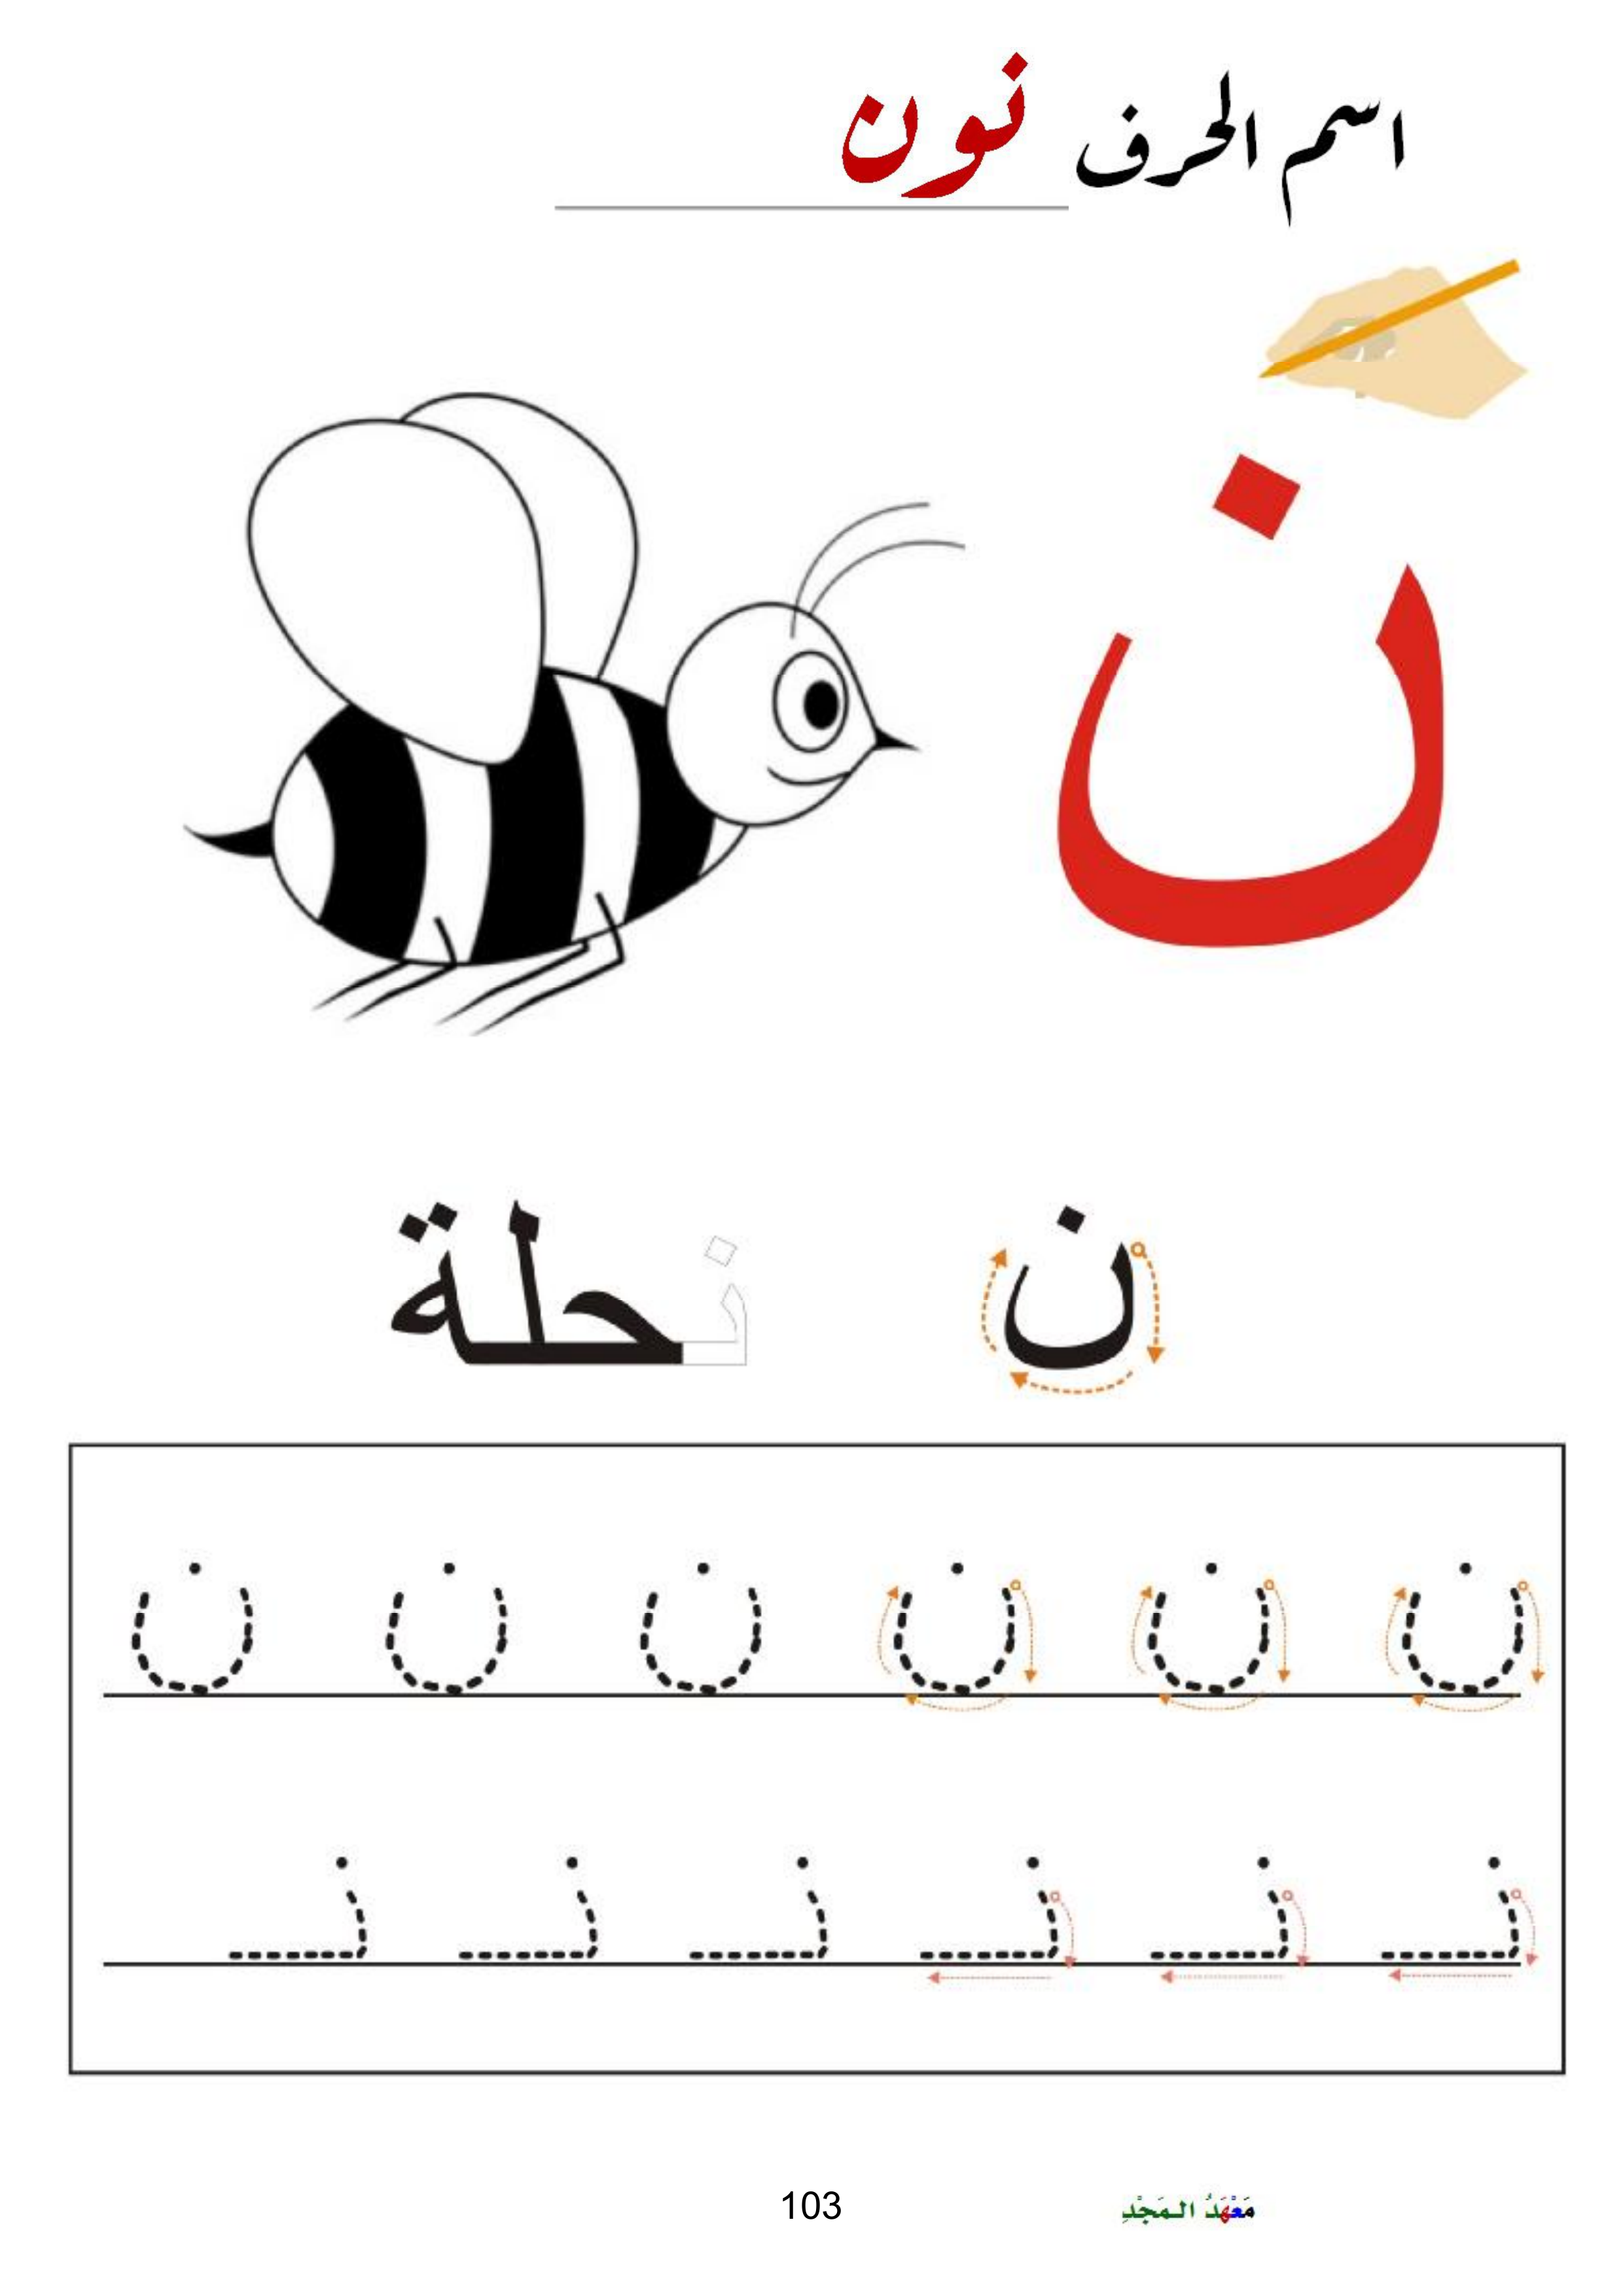 اسم الحرف نون
ن
ن نحلة
ن ن ن ن ن ن
نـ نـ نـ نـ نـ نـ
103 مَعْهَدُ الـمَجْدِ